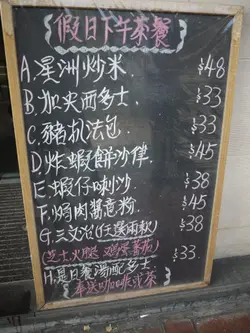 假日下午茶餐
A.星洲炒米 $48
B.加央西多士 $33
C.豬扒法包 $33
D.炸蝦餅沙律 $45
E.蝦仔喇沙 $38
F.焗肉醬意粉 $45
G.三文治(任選兩款) $38
(芝士.火腿.鸡蛋.蕃茄)
H.是日餐湯配多士 $33
奉送咖啡或茶